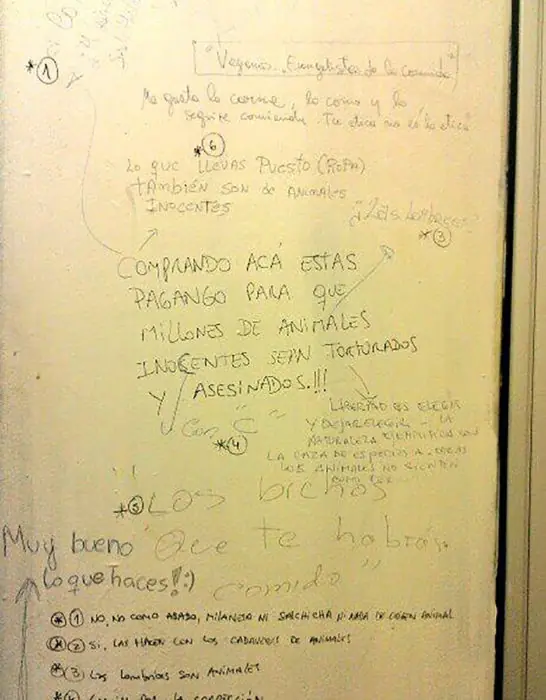 *①
"Veganos.. Evangelistas de la comida"
Me gusta la carne, la como y la
seguiré comiendo. Tu etica no es la etica
*⑥
Lo que llevas puesto (ropa)
también son de animales
inocentes
*③
COMPRANDO ACÁ ESTAS
PAGANGO PARA QUE
MILLONES DE ANIMALES
INOCENTES SEAN TORTURADOS
Y ASESINADOS.!!!
Con "C"
*④
LIBERTAD ES ELEGIR
Y DEJAR ELEGIR - LA
NATURALEZA
LA CAZA DE ESPECIES A
LOS ANIMALES NO SIENTEN
*⑤ LOS bichos
Que te habrás
comido"
Muy bueno
lo que haces!! :)
*① NO, NO COMO ASADO, MILANESA NI SALCHICHA NI NADA DE ORIGEN ANIMAL
*② SI, LAS HACEN CON LOS CADAVERES DE ANIMALES
*③ Las lombrices SON ANIMALES
*④ POR LA CORRECCIÓN